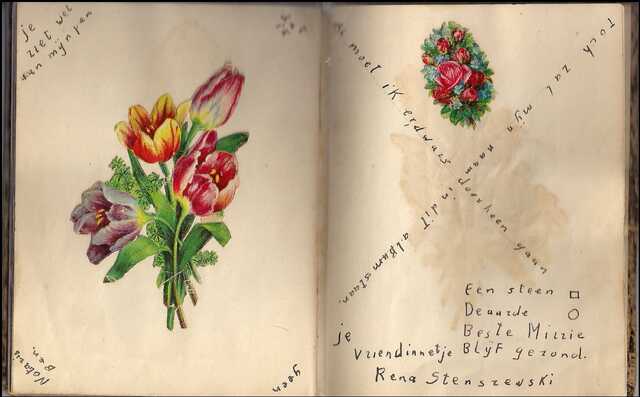 je
ziet wel
aan mijn pen
geen
Notaris
Ben.
Al moet ik erdwars doorheen gaan
Toch zal mijn naam in dit album staan.
Een steen □
De aarde ○
Beste Mirrie
Blijf gezond.
je
vriendinnetje
Rena Stenszewski